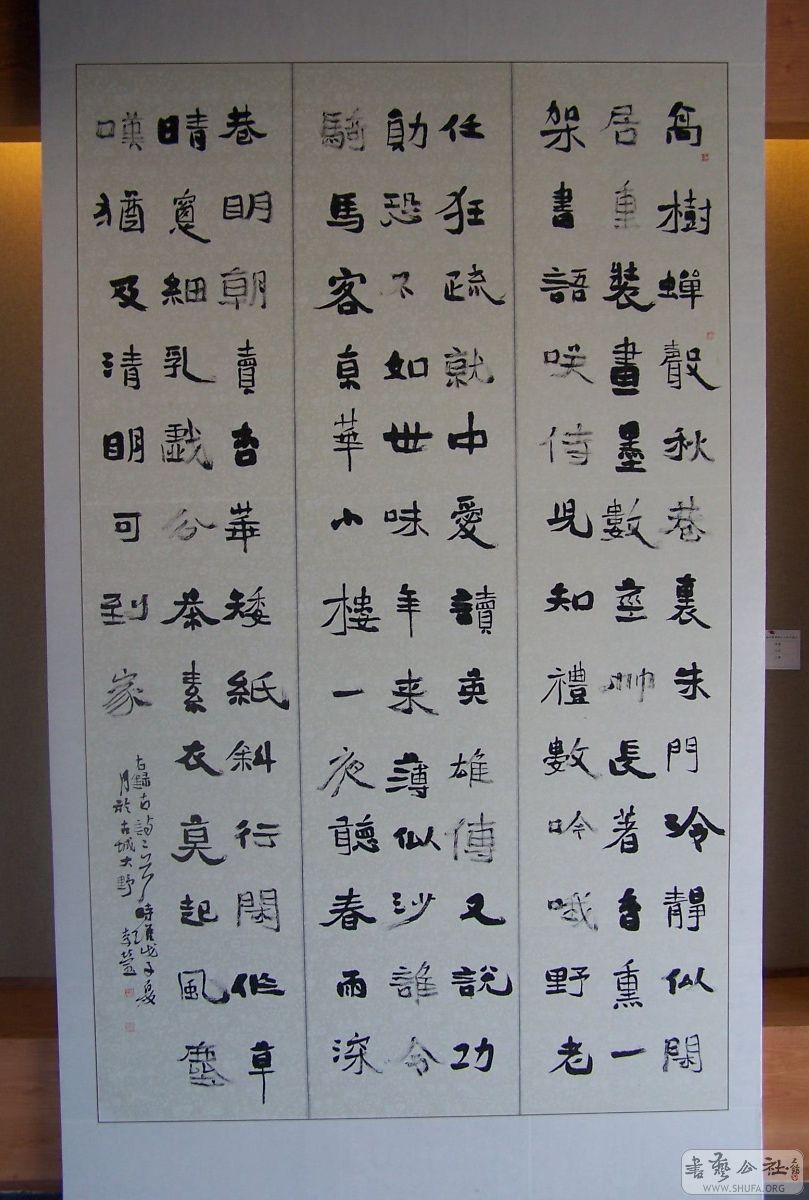 高樹蟬聲秋巷裏朱門冷靜似閑
居重裝畫墨數莖竹長著香熏一
架書語咲侍兒知禮數吟哦野老
任狂疏就中愛讀英雄傳又說功
勛恐不如世味年来薄似沙誰令
騎馬客京華小樓一夜聽春雨深
巷明朝賣杏華矮紙斜行閑作草
晴窗細乳戲分茶素衣莫起風塵
嘆猶及清明可到家
右録古詩二首時維戊子夏
月於古城大野
書藝公社
WWW.SHUFA.ORG